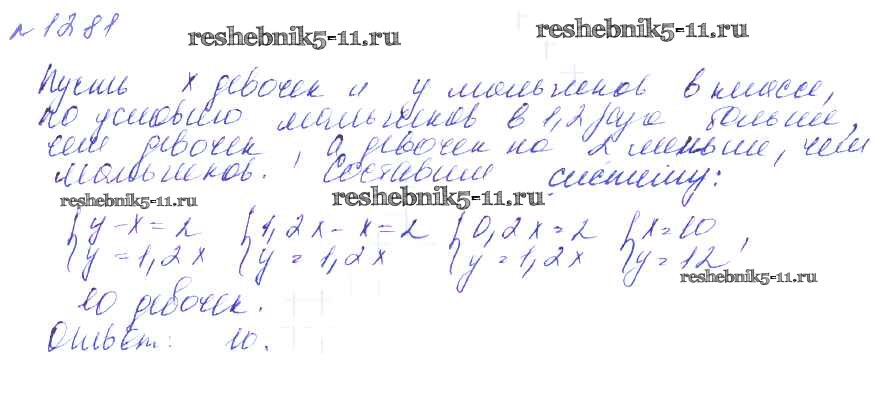 №1281
reshebnik5-11.ru reshebnik5-11.ru
Пусть x девочек и y мальчиков в классе,
по условию мальчиков в 1,2 раза больше,
чем девочек, а девочек на 2 меньше, чем
мальчиков. Составим систему:
reshebnik5-11.ru reshebnik5-11.ru
{y-x=2 {1,2x-x=2 {0,2x=2 {x=10
{y=1,2x {y=1,2x {y=1,2x {y=12,
reshebnik5-11.ru
10 девочек.
Ответ: 10.